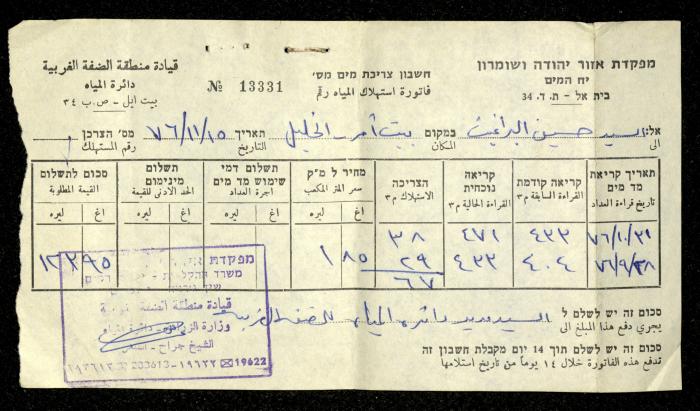 מפקדת אזור יהודה ושומרון
יח המים
בית אל - ת. ד. 34
חשבון צריכת מים מס׳
فاتورة استهلاك المياه رقم
№ 13331
قيادة منطقة الضفة الغربية
دائرة المياه
بيت ايل - ص. ب ٣٤
אל: السيد حسين
الى
במקום بيت أمر - الخليل
المكان
תאריך ٧٦/١١/١٥
التاريخ
מס׳ הצרכן
رقم المستهلك
תאריך קריאת מד מים
تاريخ قراءة العداد
קריאה קודמת
القراءة السابقة م٣
קריאה נוכחית
القراءة الحالية م٣
הצריכה
الاستهلاك م٣
מחיר ל מ״ק
سعر المتر المكعب
אג اغ
ל״י ليره
תשלום דמי שימוש מד מים
اجرة العداد
اغ ليره
תשלום מינימום
الحد الادنى للقيمة
اغ ليره
סכום לתשלום
القيمة المطلوبة
اغ ليره
٧٦/١٠/٣١ ٤٣٣ ٤٧١ ٣٨
٧٦/٩/٢٨ ٤٠٤ ٤٣٣ ٢٩ ١٨٥ ١٢٣٩٥
٦٧
סכום זה יש לשלם ל السيد مدير دائرة المياه للضفة الغربية
يجري دفع هذا المبلغ الى
סכום זה יש לשלם תוך 14 יום מקבלת חשבון זה
تدفع هذه الفاتورة خلال ١٤ يوماً من تاريخ استلامها
מפקדת
משרד החקלאות
قيادة منطقة الضفة الغربية
وزارة الزراعة - دائرة المياه
الشيخ جراح
19622 ✉ ١٩٦٢٢